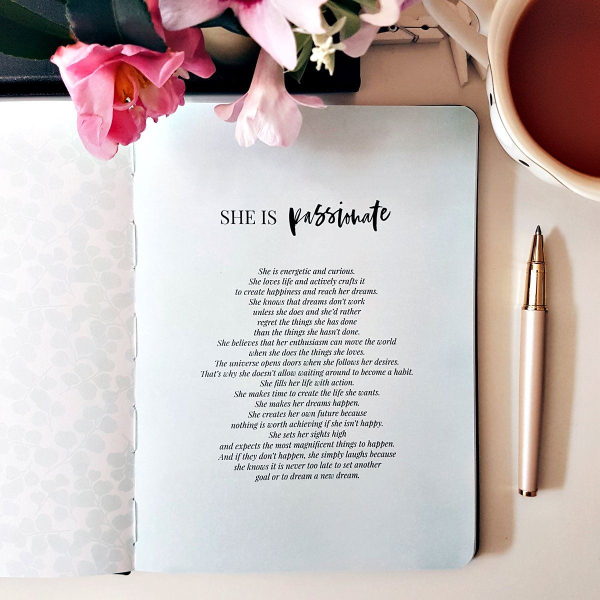 SHE IS passionate
She is energetic and curious.
She loves life and actively crafts it
to create happiness and reach her dreams.
She knows that dreams don't work
unless she does and she'd rather
regret the things she has done
than the things she hasn't done.
She believes that her enthusiasm can move the world
when she does the things she loves.
The universe opens doors when she follows her desires.
That's why she doesn't allow waiting around to become a habit.
She fills her life with action.
She makes time to create the life she wants.
She makes her dreams happen.
She creates her own future because
nothing is worth achieving if she isn't happy.
She sets her sights high
and expects the most magnificent things to happen.
And if they don't happen, she simply laughs because
she knows it is never too late to set another
goal or to dream a new dream.